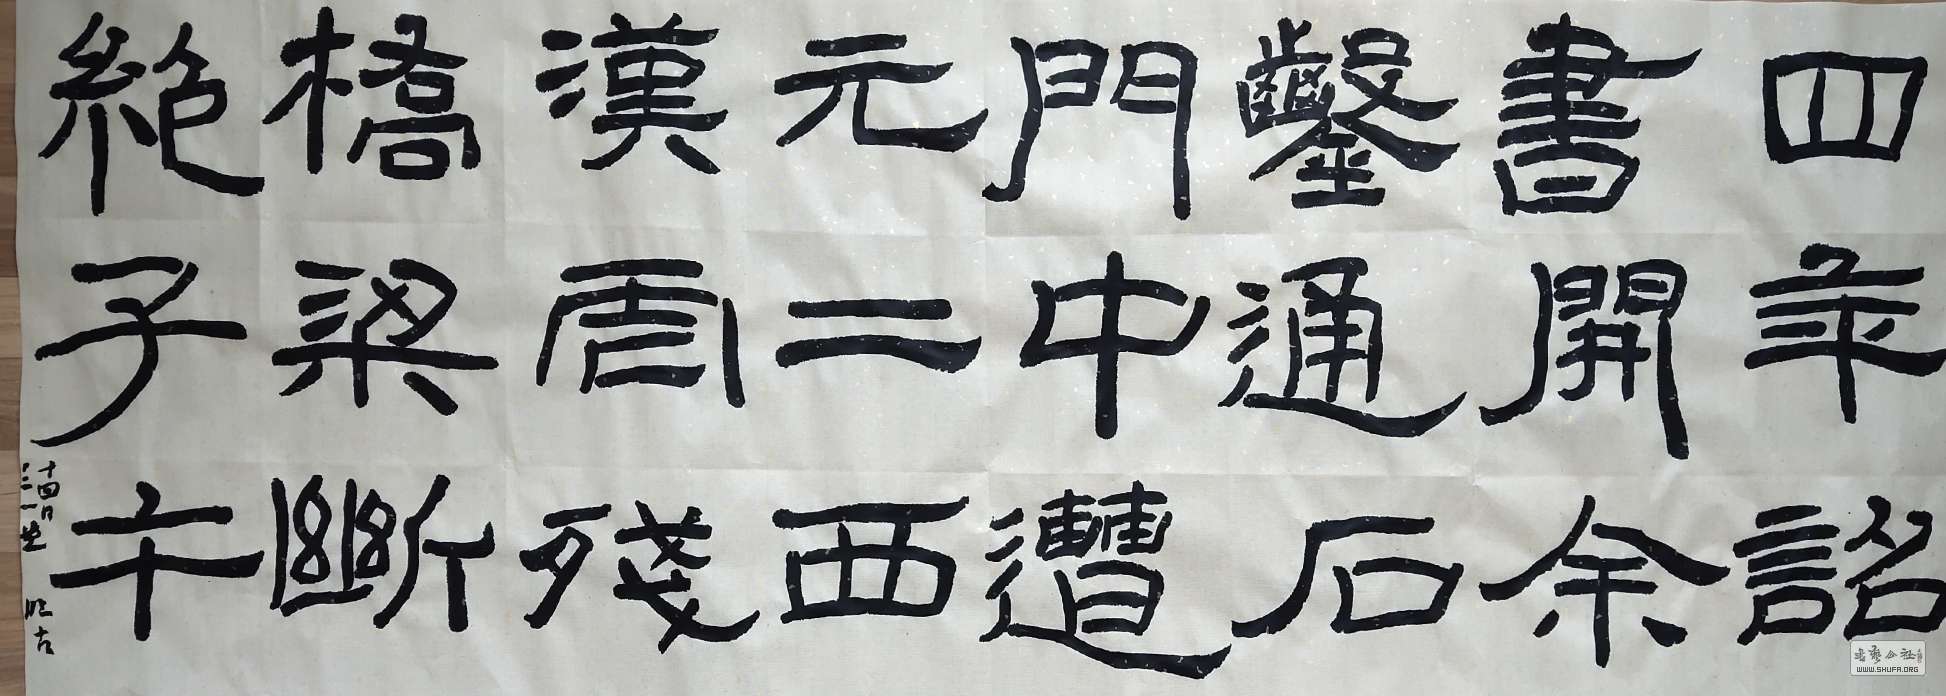 四年詔
書開余
鑿通石
門中遭
元二西
漢虐殘
橋梁斷
絕子午
十四日
臨古
书艺公社
WWW.SHUFA.ORG